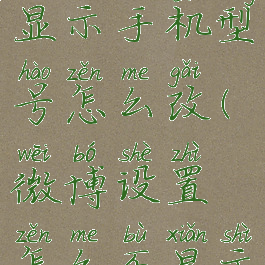 显示手机型
hào zěn me gǎi
号怎么改(
wēi bó shè zhì
微博设置
zěn me bù xiǎn shì
怎么不显示